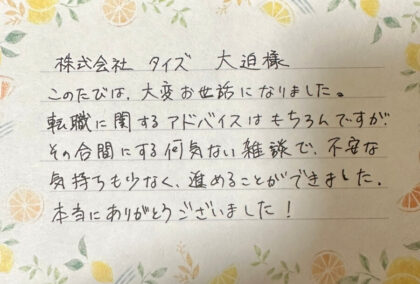 株式会社 タイズ 大迫様
このたびは、大変お世話になりました。
転職に関するアドバイスはもちろんですが、
その合間にする何気ない雑談で、不安な
気持ちも少なく、進めることができました。
本当にありがとうございました！